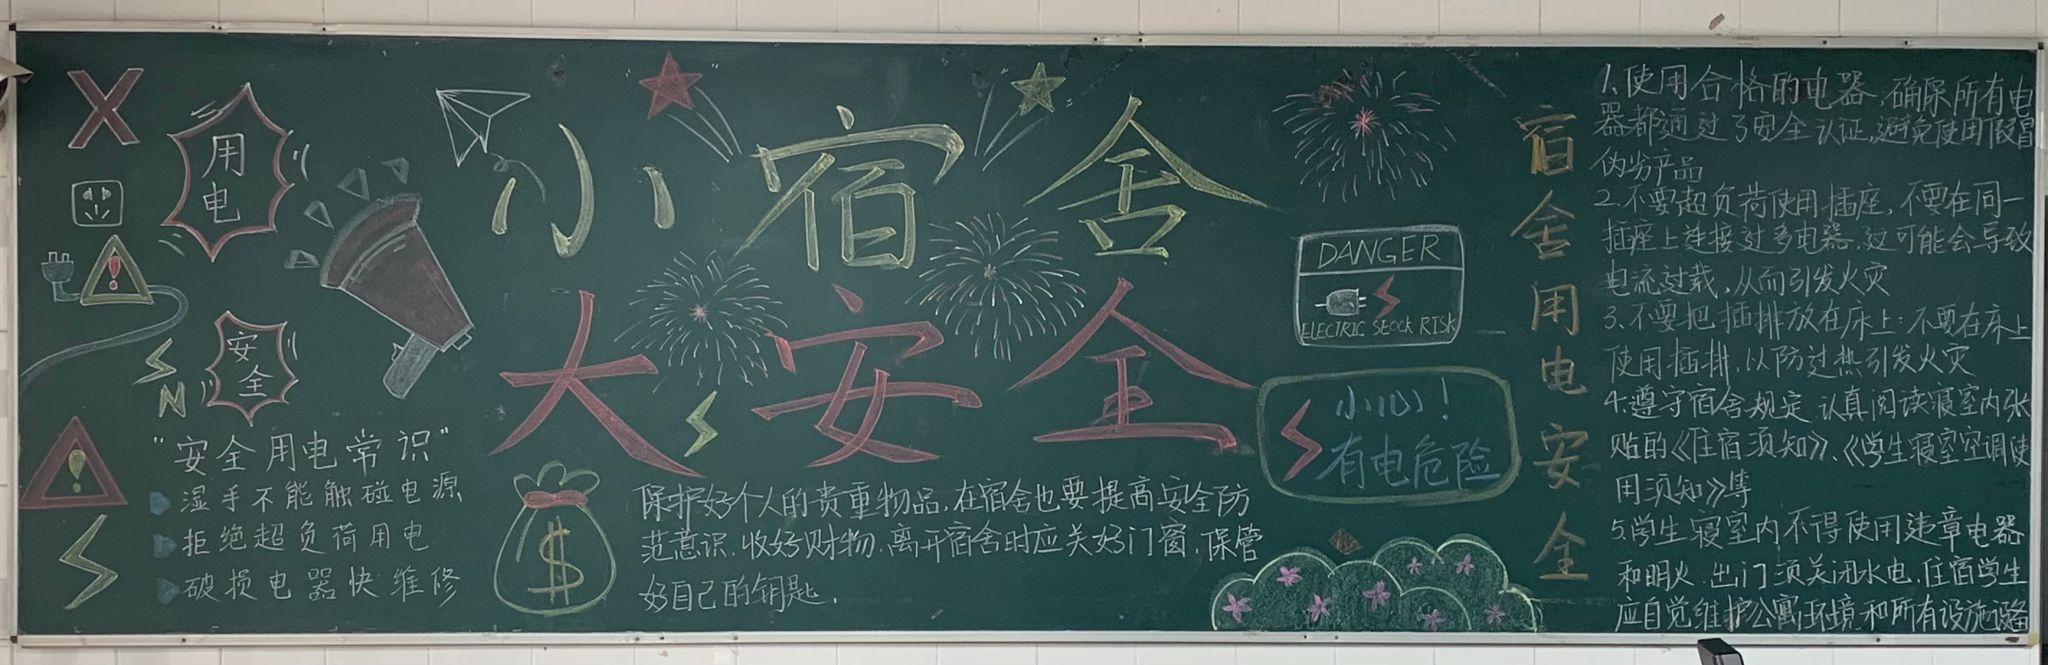 用
电
安
全
N
“安全用电常识”
湿手不能触碰电源
拒绝超负荷用电
破损电器快维修
小宿舍
大安全
$
保护好个人的贵重物品,在宿舍也要提高安全防
范意识.收好财物.离开宿舍时应关好门窗.保管
好自己的钥匙.
DANGER
ELECTRIC SEOCK RISK
小心!
有电危险
宿舍用电安全
1.使用合格的电器.确保所有电
器都通过了安全认证,避免使用假冒
伪劣产品
2.不要超负荷使用插座,不要在同一
插座上连接过多电器.这可能会导致
电流过载,从而引发火灾
3.不要把插排放在床上:不要在床上
使用插排,以防过热引发火灾
4.遵守宿舍规定.认真阅读寝室内张
贴的《住宿须知》、《学生寝室空调使
用须知》等
5.学生寝室内不得使用违章电器
和明火.出门须关闭水电.住宿学生
应自觉维护公寓环境和所有设施设备